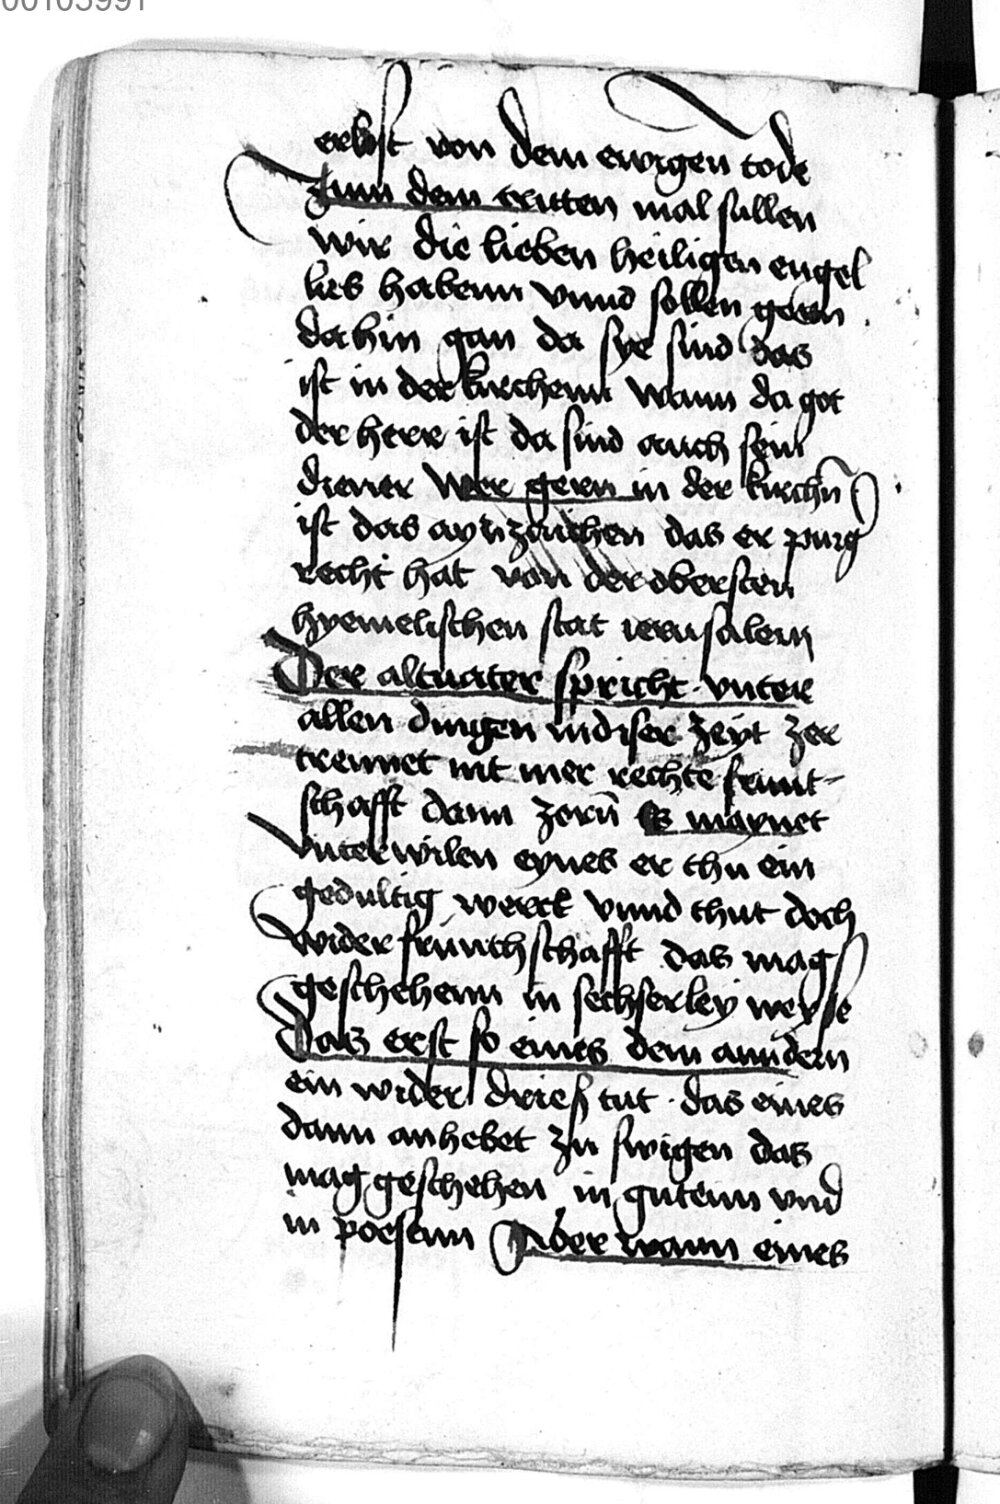 00103991
erlost von dem ewigen tode
Zum dem tritten mal sullen
wir die lieben heiligen engel
lieb habenn vnnd sollen geren
dahin gan da sye sind das
ist in der kirchenn wann da got
der herr ist da sind auch sein
diener wer gern in der kirchn̄
ist das ayn zaichen das er purg
recht hat von der obersten
hyemelischen stat ierusalem
Der altuater spricht vnter
allen dingen in diser zeyt zer
trennet nit mer rechte frunt
schafft dann zorn̄ Es maynet
vnterwilen eynes er thu ein
gedultig werck vnnd thut doch
wider frunthschafft das mag
geschehenn in sechserley weyse
Das erst so eines dem anndern
ein wider dries tut das eines
dann anhebet zu swigen das
mag geschehen in gutenn vnd
in poesenn Aber wann eines